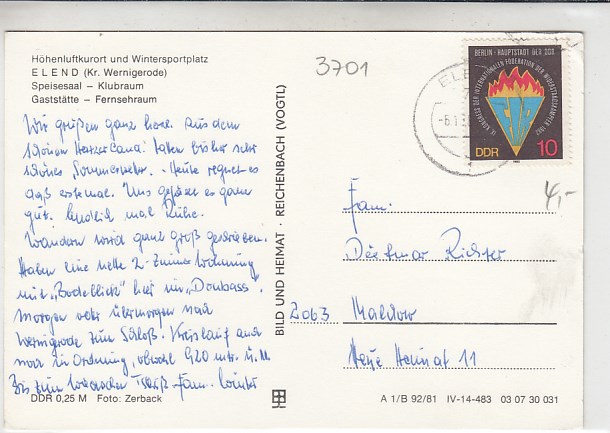 Höhenluftkurort und Wintersportplatz
ELEND (Kr. Wernigerode)
Speisesaal – Klubraum
Gaststätte – Fernsehraum
Wir grüßen ganz herzl. aus dem
schönen Harzer Land! Hatten bisher sehr
schönes Sommerwetter. – Heute regnet es
das erstemal. Uns gefällt es ganz
gut. Endlich mal Ruhe.
Wandern wird ganz groß geschrieben.
Haben eine nette 2-Zimmer Wohnung
mit „Bodeblick" hier im „Donbass".
Morgen oder übermorgen nach
Wernigerode zum Schloß. Kreislauf auch
noch in Ordnung, obwohl 420 mtr. ü. M.
Bis zum Wiedersehen Tschüß Fam. Winter
DDR 0,25 M Foto: Zerback
BILD UND HEIMAT · REICHENBACH (VOGTL)
3701
ELEND
-6.1
BERLIN - HAUPTSTADT DER DDR
IX. KONGRESS DER INTERNATIONALEN FÖDERATION DER WIDERSTANDSKÄMPFER 1982
DDR 10
4,-
Fam.
Dietmar Richter
2063 Malchow
Neue Heimat 11
A 1/B 92/81 IV-14-483 03 07 30 031